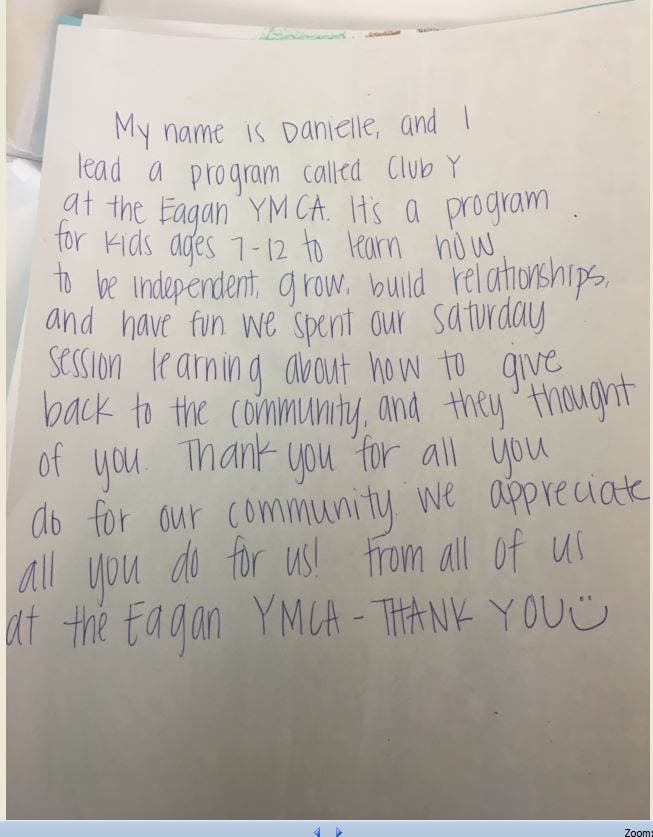 My name is Danielle, and I
lead a program called Club Y
at the Eagan YMCA. It's a program
for kids ages 7-12 to learn how
to be independent, grow, build relationships,
and have fun. We spent our saturday
session learning about how to give
back to the community, and they thought
of you. Thank you for all you
do for our community. We appreciate
all you do for us! From all of us
at the Eagan YMCA - THANK YOU Ü
Zoom: